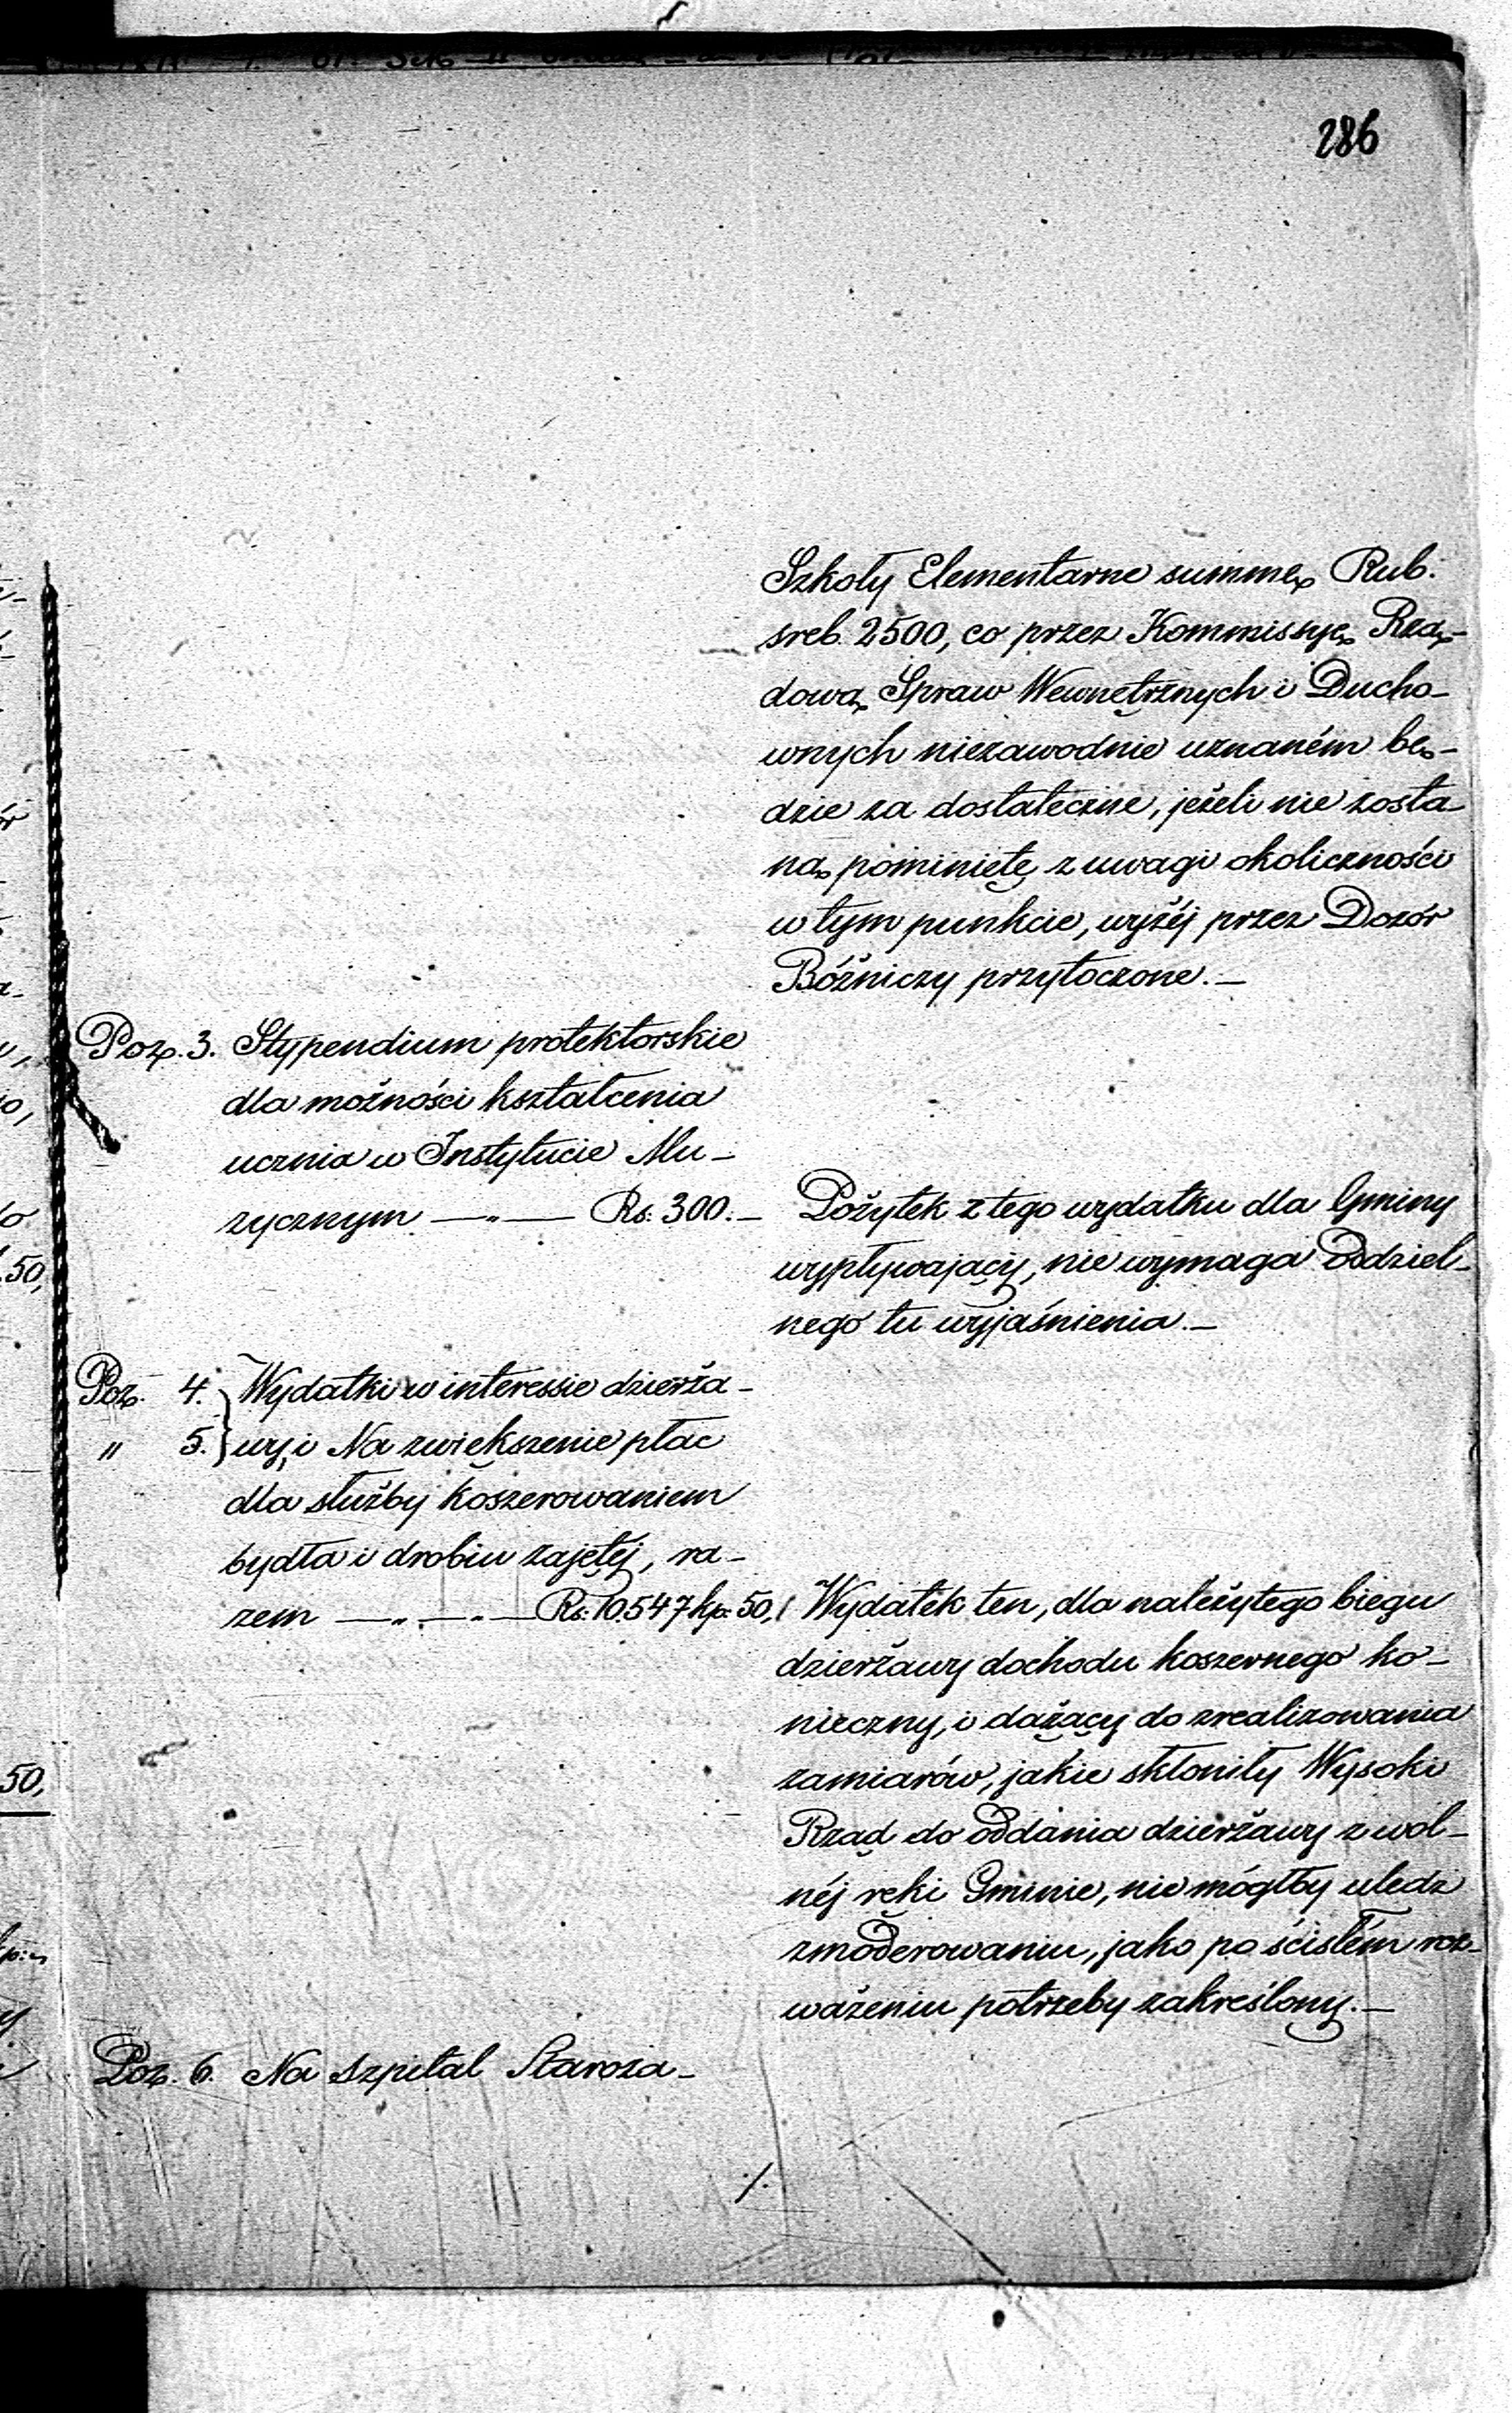 286
Szkoły Elementarne summę Rub.
sreb. 2500, co przez Kommissyę Rzą-
dową Spraw Wewnętrznych i Ducho-
wnych niezawodnie uznaném bę-
dzie za dostateczne, jeżeli nie zosta-
ną pominięte z uwagi okoliczności
w tym punkcie, wyżéj przez Dozór
Bóżniczy przytoczone. —
Poz. 3. Stypendium protektorskie
dla możności kształcenia
ucznia w Instytucie Mu-
zycznym —„— Rs. 300. —
Pożytek z tego wydatku dla Gminy
wypływający, nie wymaga oddziel-
nego tu wyjaśnienia. —
Poz. 4. } Wydatki w interessie dzierża-
„ 5. } wy, i Na zwiększenie płac
dla służby koszerowaniem
bydła i drobiu zajętéj, ra-
zem —„—„— Rs: 10.547 kp: 50,
Wydatek ten, dla należytego biegu
dzierżawy dochodu koszernego ko-
nieczny, i dążący do zrealizowania
zamiarów, jakie skłoniły Wysoki
Rząd do oddania dzierżawy z wol-
néj ręki Gminie, nie mógłby uledz
zmoderowaniu, jako po ścisłém roz-
ważeniu potrzeby zakreślony. —
Poz. 6. Na Szpital Staroza-
./.
50,
50,